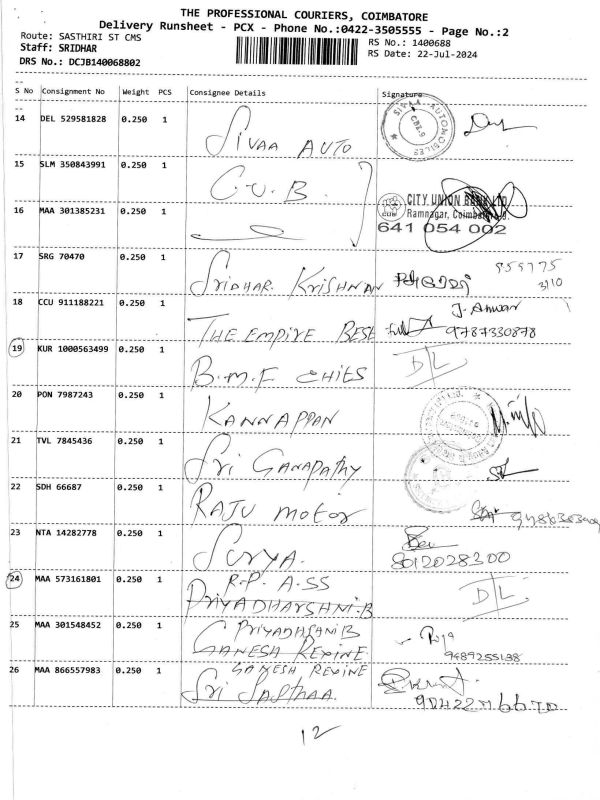 THE PROFESSIONAL COURIERS, COIMBATORE
Delivery Runsheet - PCX - Phone No.:0422-3505555 - Page No.:2
Route: SASTHIRI ST CMS
RS No.: 1400688
Staff: SRIDHAR
RS Date: 22-Jul-2024
DRS No.: DCJB140068802
S No Consignment No Weight PCS Consignee Details Signature
14 DEL 529581828 0.250 1 SIVAA AUTO
SIVAA AUTOMOBILES
15 SLM 350843991 0.250 1 C.U.B.
CITY UNION BANK LTD.
16 MAA 301385231 0.250 1
Ramnagar, Coimbatore
641 054 002
17 SRG 70470 0.250 1 SRIDHAR. KRISHNAN
18 CCU 911188221 0.250 1 THE EMPIRE BEST J. Anwar
9787330878
19 KUR 1000563499 0.250 1 B.M.F CHITS D/L
20 PON 7987243 0.250 1 KANNAPPAN
21 TVL 7845436 0.250 1 Sri GANAPATHY
22 SDH 66687 0.250 1 RAJU MOTOR
23 NTA 14282778 0.250 1 SURYA.
8012028300
24 MAA 573161801 0.250 1 R.P. ASS D/L
PRIYADHARSANI.B
25 MAA 301548452 0.250 1 PRIYADHSANI B
GANESH REXINE
9489255198
26 MAA 866557983 0.250 1 GANESH REXINE
Sri SASTHAA.
12